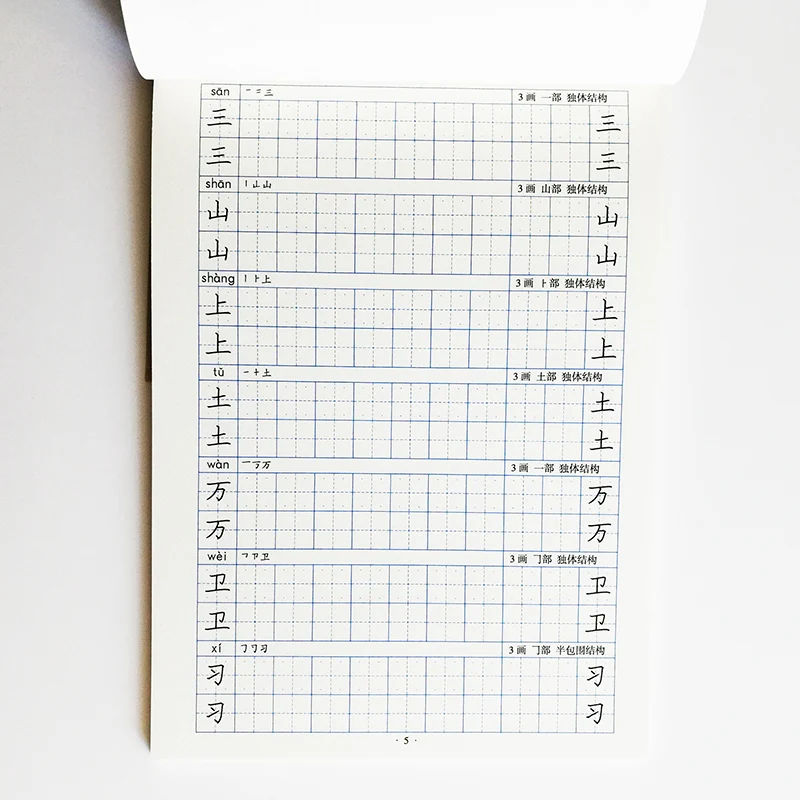 sān 一 二 三 3画 一部 独体结构
三 三
三 三
shān 丨 山 山 3画 山部 独体结构
山 山
山 山
shàng 丨 ⺊ 上 3画 ⺊部 独体结构
上 上
上 上
tǔ 一 十 土 3画 土部 独体结构
土 土
土 土
wàn 一 丂 万 3画 一部 独体结构
万 万
万 万
wèi 乛 卩 卫 3画 卩部 独体结构
卫 卫
卫 卫
xí 𠃌 习 习 3画 𠃌部 半包围结构
习 习
习 习
· 5 ·